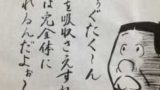 うぐたく〜ん
を吸収さえすれ
は完全体に
れるんだよぉ〜